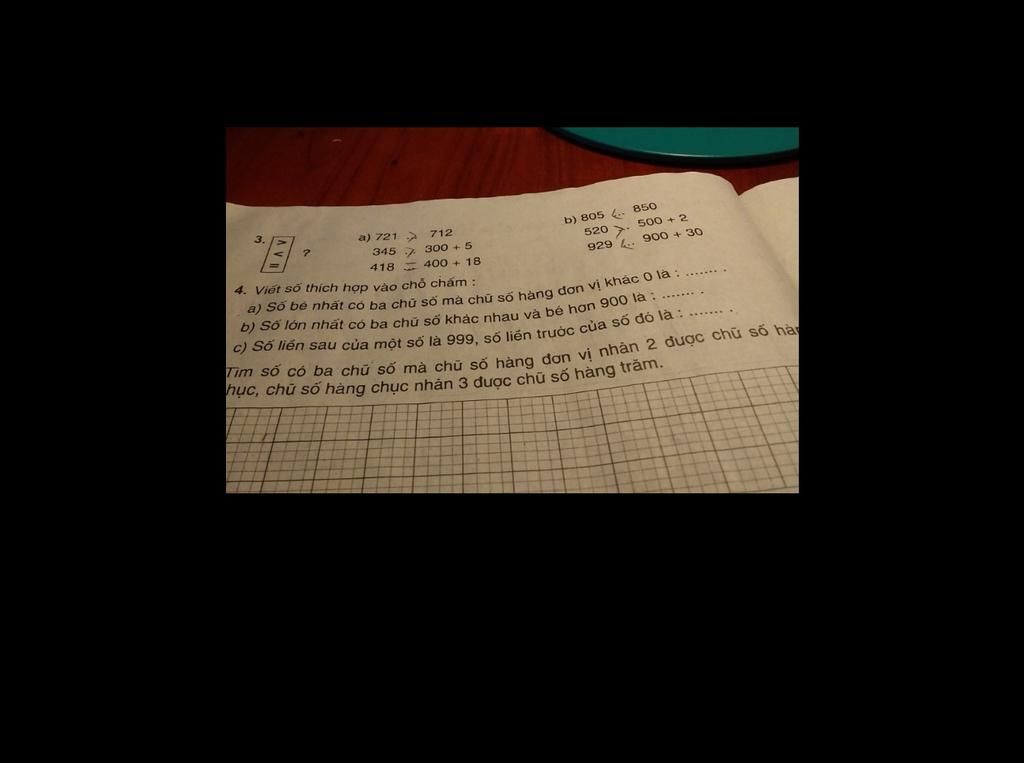 3. > < = ?
a) 721 > 712
345 > 300 + 5
418 = 400 + 18
b) 805 < 850
520 > 500 + 2
929 < 900 + 30
4. Viết số thích hợp vào chỗ chấm :
a) Số bé nhất có ba chữ số mà chữ số hàng đơn vị khác 0 là : ....... .
b) Số lớn nhất có ba chữ số khác nhau và bé hơn 900 là : ....... .
c) Số liền sau của một số là 999, số liền trước của số đó là : ....... .
Tìm số có ba chữ số mà chữ số hàng đơn vị nhân 2 được chữ số hàn
hục, chữ số hàng chục nhân 3 được chữ số hàng trăm.